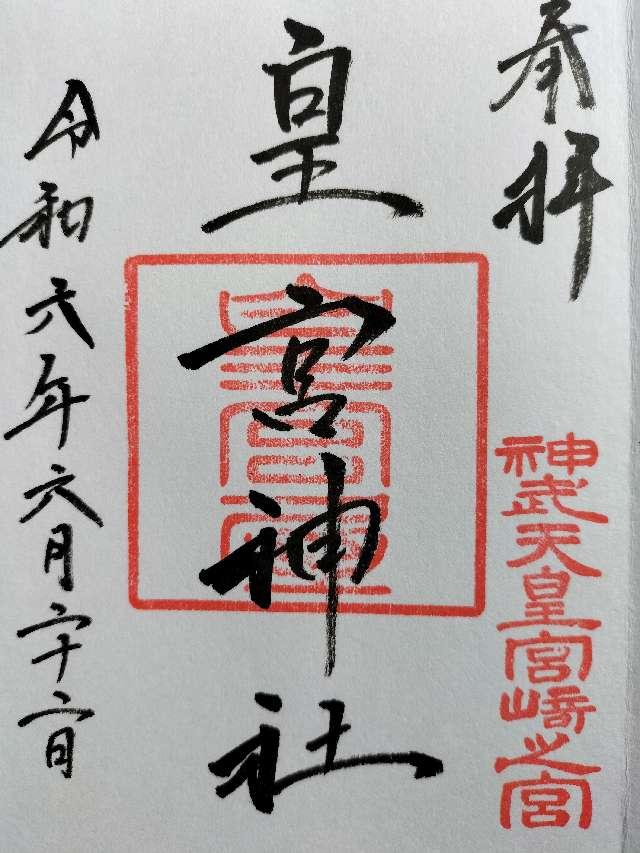 奉拝
神武天皇宮崎之宮
皇宮神社
令和六年六月二十二日